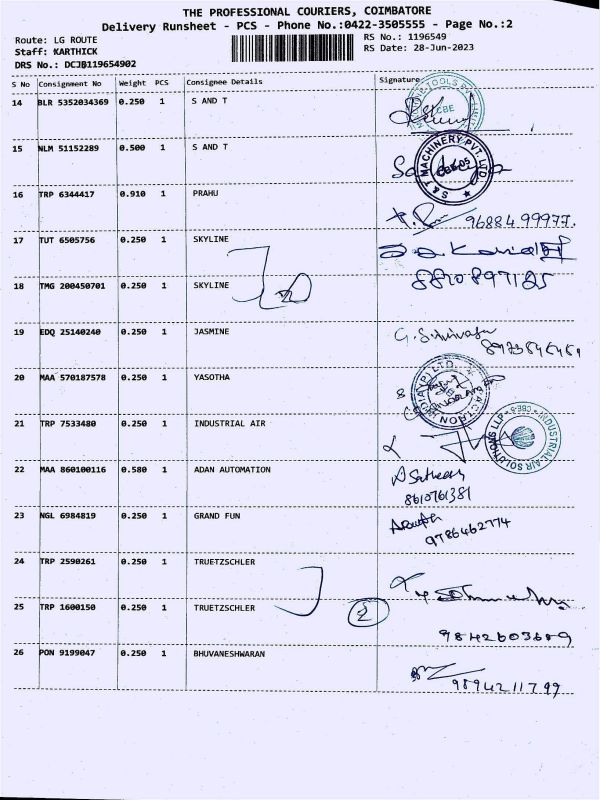 THE PROFESSIONAL COURIERS, COIMBATORE
Delivery Runsheet - PCS - Phone No.:0422-3505555 - Page No.:2
Route: LG ROUTE
RS No.: 1196549
Staff: KARTHICK
RS Date: 28-Jun-2023
DRS No.: DCJB119654902
S No Consignment No Weight PCS Consignee Details Signature
14 BLR 5352034369 0.250 1 S AND T
15 NLM 51152289 0.500 1 S AND T
S & T MACHINERY PVT LTD
16 TRP 6344417 0.910 1 PRAHU
96884 99977.
17 TUT 6505756 0.250 1 SKYLINE
18 TMG 200450701 0.250 1 SKYLINE
8820897125
19 EDQ 25140240 0.250 1 JASMINE
G. Srinivasa
20 MAA 570187578 0.250 1 YASOTHA
21 TRP 7533480 0.250 1 INDUSTRIAL AIR
INDUSTRIAL AIR SOLUTIONS LLP CBE-5
22 MAA 860100116 0.580 1 ADAN AUTOMATION
8610761381
23 NGL 6984819 0.250 1 GRAND FUN
9786462774
24 TRP 2590261 0.250 1 TRUETZSCHLER
25 TRP 1600150 0.250 1 TRUETZSCHLER
2
9842603689
26 PON 9199047 0.250 1 BHUVANESHWARAN
9894211799